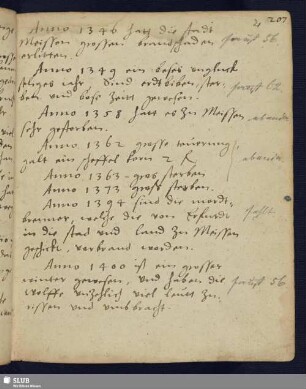 207
Anno 1346 hatt die stadt
Meissen grossen brandschaden
erlitten.
Anno 1349 ein boses unglück
seliges Jahr. sind erdtbiben, ster
ben und bose Zeitt gewesen.
Anno 1358 hatt es zu Meissen
sehr gestorben.
Anno 1362 grosse teuerung,
galt ein scheffel korn 2
Anno 1363 gros sterben
Anno 1373 gross sterben.
Anno 1394 sind die mordt
brenner, welche die von Erfurdt
in die stad und land zu Meissen
geschickt, verbrand worden.
Anno 1400 ist ein grosser
winter gewesen, und haben die
wolffe unzehlich viel leutt zu
rissen und umbbracht.
SLUB